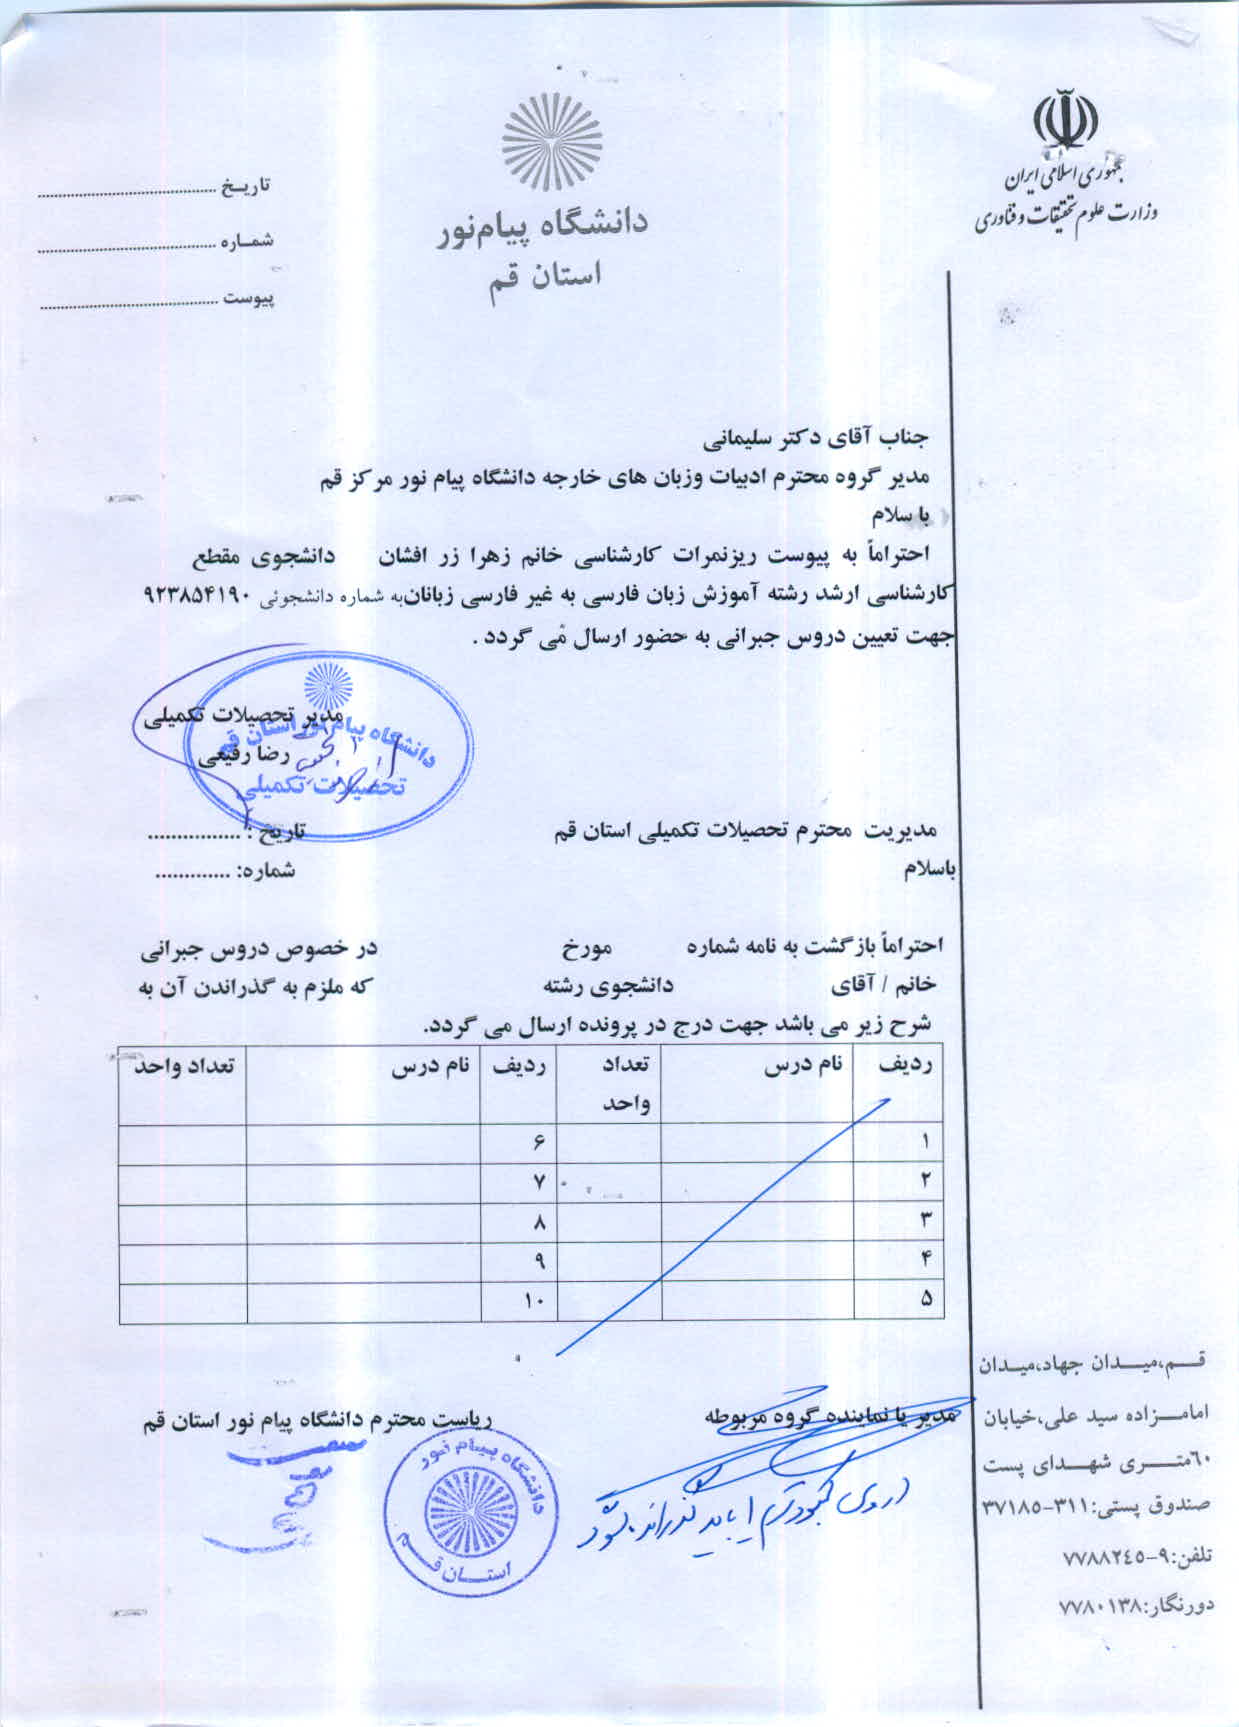 جمهوری اسلامی ایران
وزارت علوم تحقیقات و فناوری
دانشگاه پیام‌نور
استان قم
تاریـخ ........................................
شمـاره ........................................
پیوست ........................................
جناب آقای دکتر سلیمانی
مدیر گروه محترم ادبیات وزبان های خارجه دانشگاه پیام نور مرکز قم
با سلام
احتراماً به پیوست ریزنمرات کارشناسی خانم زهرا زر افشان دانشجوی مقطع
کارشناسی ارشد رشته آموزش زبان فارسی به غیر فارسی زبانان به شماره دانشجوئی ۹۲۳۸۵۴۱۹۰
جهت تعیین دروس جبرانی به حضور ارسال می گردد .
مدیر تحصیلات تکمیلی
رضا رفیعی
دانشگاه پیام نور استان قم
تحصیلات تکمیلی
مدیریت محترم تحصیلات تکمیلی استان قم
تاریخ : ................
باسلام
شماره: .............
احتراماً بازگشت به نامه شماره مورخ در خصوص دروس جبرانی
خانم / آقای دانشجوی رشته که ملزم به گذراندن آن به
شرح زیر می باشد جهت درج در پرونده ارسال می گردد.
ردیف نام درس تعداد واحد ردیف نام درس تعداد واحد
۱ ۶
۲ ۷
۳ ۸
۴ ۹
۵ ۱۰
مدیر یا نماینده گروه مربوطه
ریاست محترم دانشگاه پیام نور استان قم
دانشگاه پیـام نور
استـــان قــم
قــم،میــدان جهاد،میـدان
امامــزاده سید علی،خیابان
٦٠متــری شهــدای پست
صندوق پستی:۳۱۱-۳۷۱۸۵
تلفن:۹-۷۷۸۸۲٤۵
دورنگار:۷۷۸۰۱۳۸